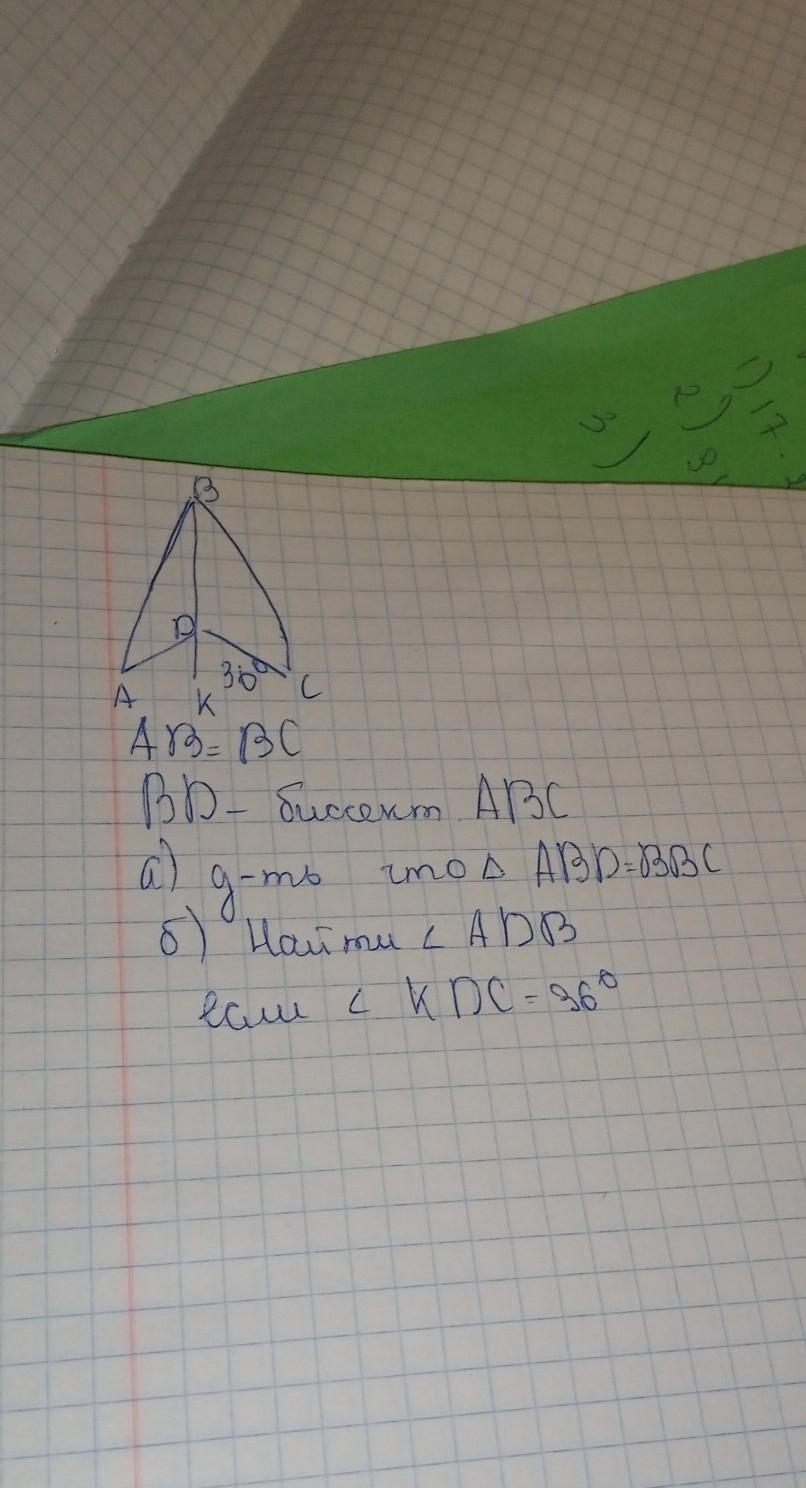 1) 17.
2) 9
3)
B
D
30°
A
K
C
AB = BC
BD - биссект ABC
а) д-ть что Δ ABD = BBC
б) Найти < ADB
если < KDC = 36°